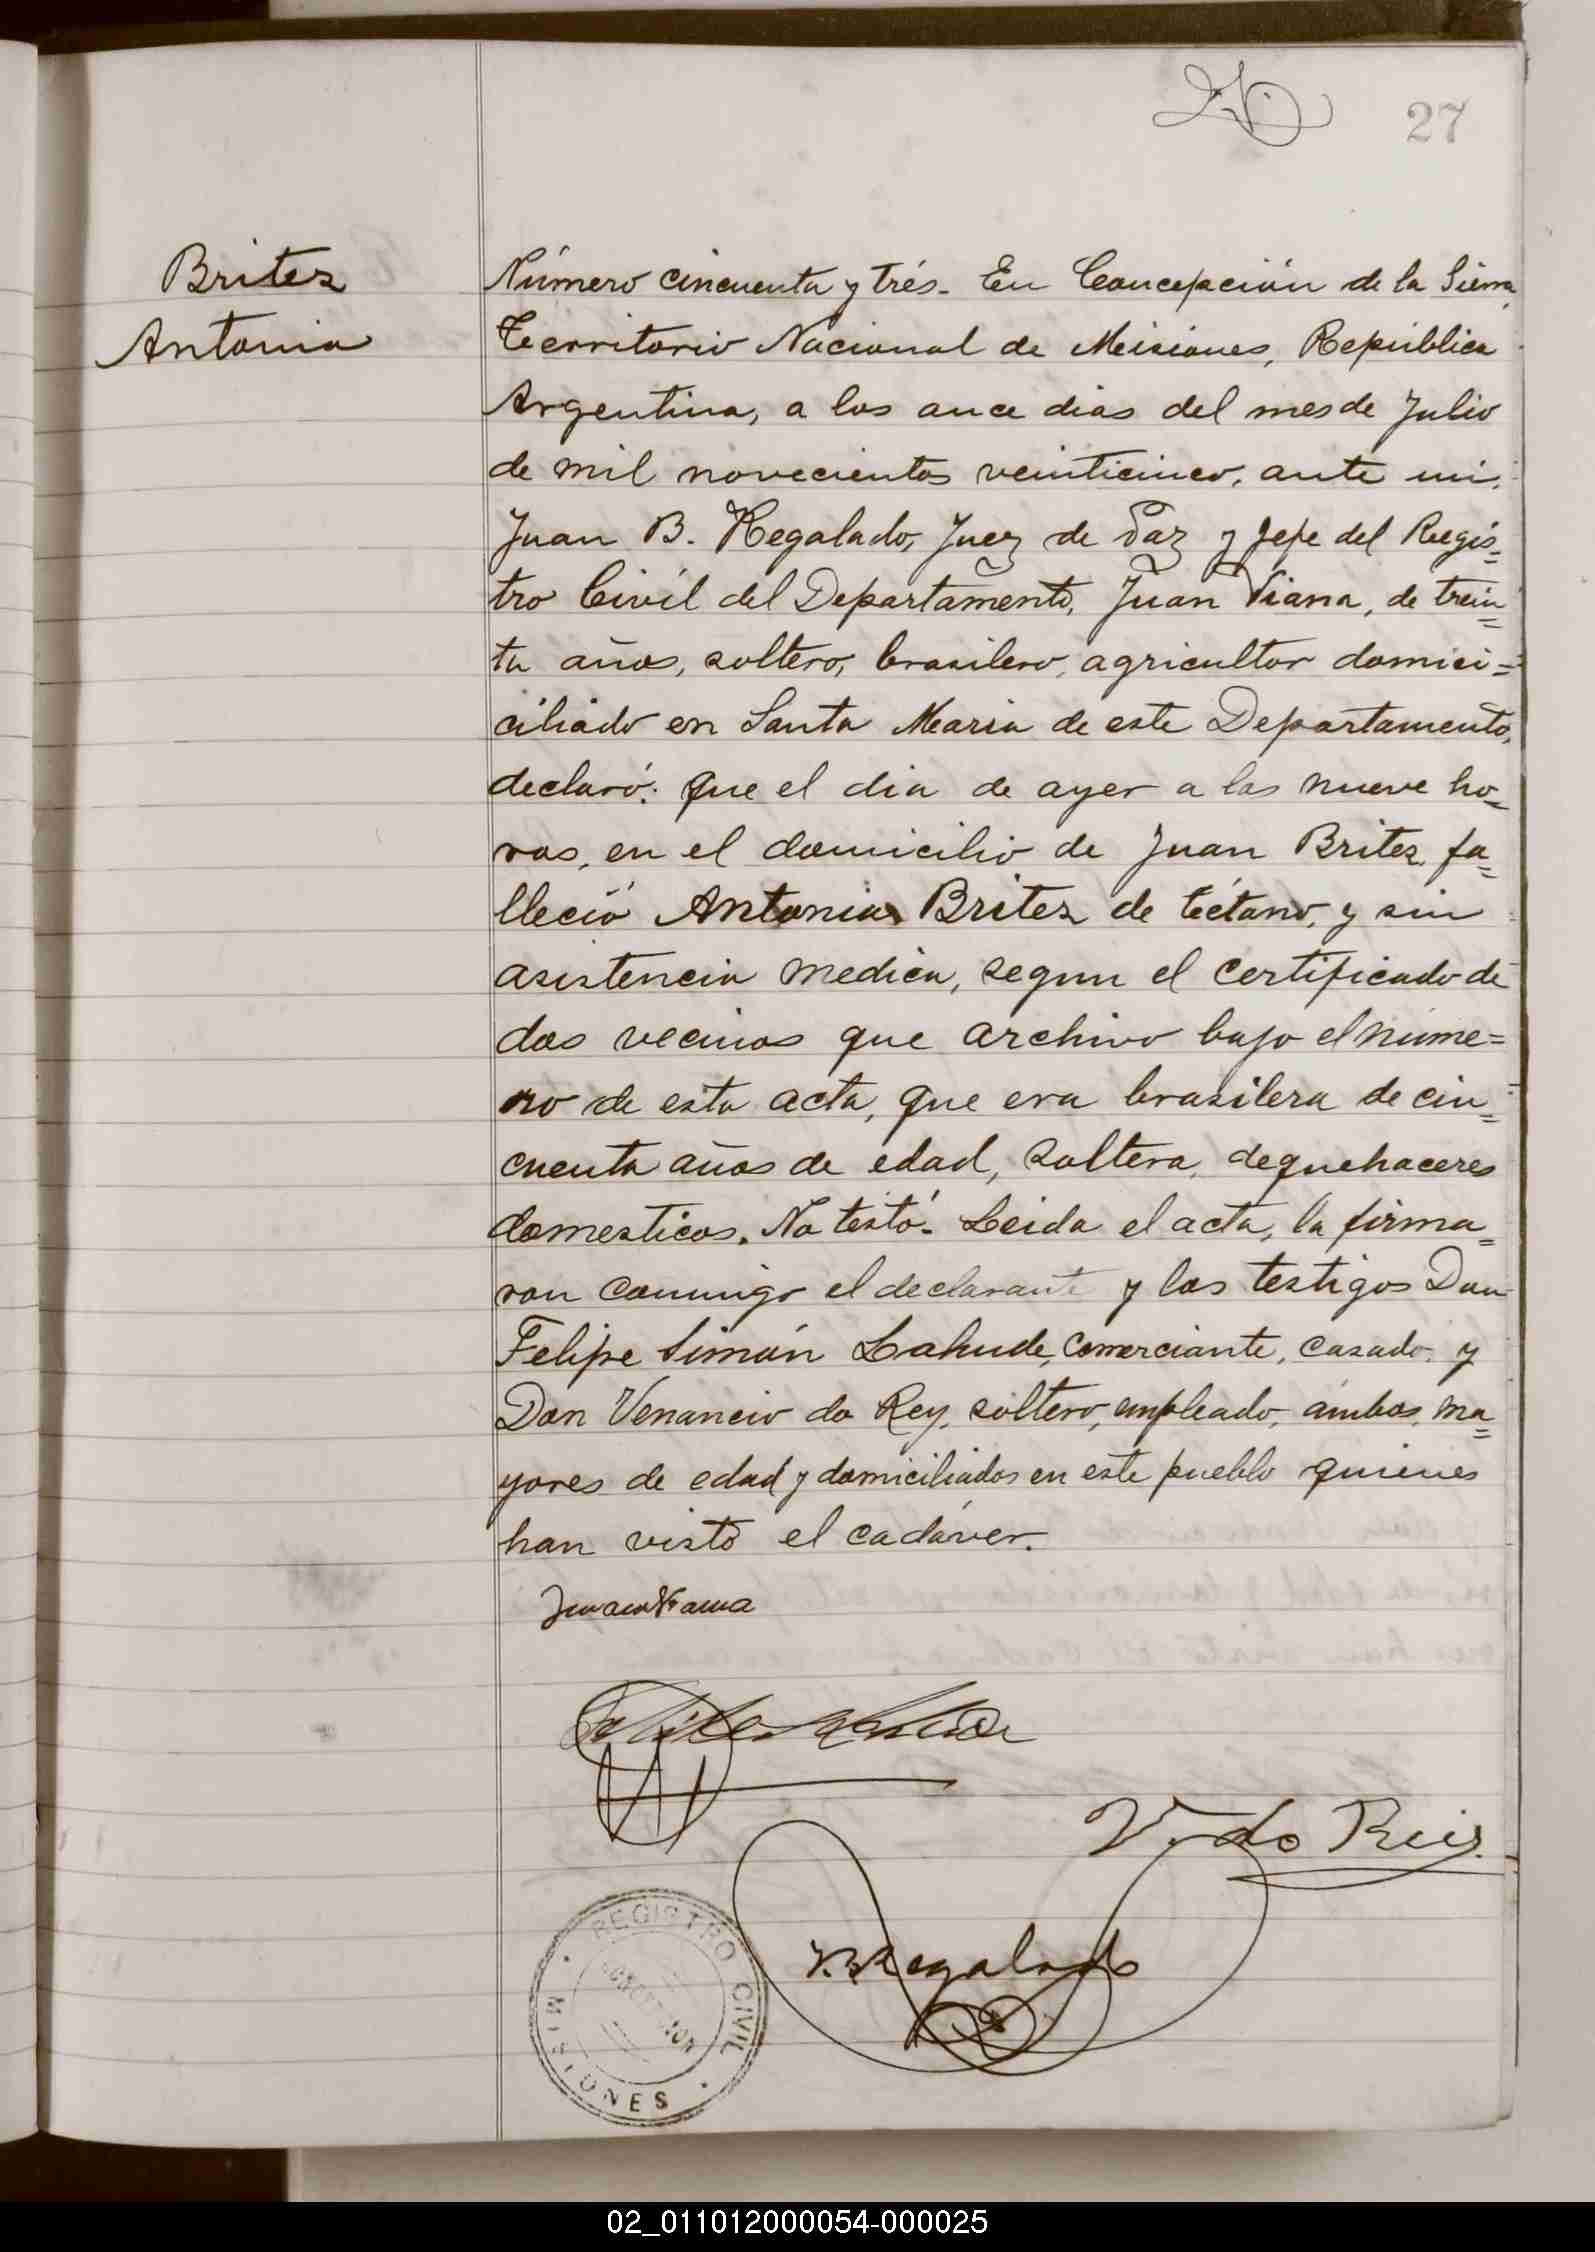 27
Britez
Antonia
Número cincuenta y trés. En Concepción de la Sierra
Territorio Nacional de Misiones, República
Argentina, a los once dias del mes de Julio
de mil novecientos veinticinco, ante mi,
Juan B. Regalado, Juez de Paz y Jefe del Regis=
tro Civil del Departamento, Juan Viana, de trein=
ta años, soltero, brasilero, agricultor domici=
ciliado en Santa Maria de este Departamento,
declaró: que el dia de ayer a las nueve ho=
ras, en el domicilio de Juan Britez, fa=
lleció Antonia Britez de tétano, y sin
asistencia medica, segun el certificado de
dos vecinos que archivo bajo el núme=
ro de esta acta, que era brasilera de cin=
cuenta años de edad, soltera, de quehaceres
domesticos. No testó. Leida el acta, la firma=
ron conmigo el declarante y los testigos Don
Felipe Simón Lahude, comerciante, casado, y
Don Venancio do Rey, soltero, empleado, ámbos ma=
yores de edad y domiciliados en este pueblo quienes
han visto el cadáver.
Juan Viana
V. do Reis
J.B. Regalado
REGISTRO CIVIL
CONCEPCION
MISIONES
02_011012000054-000025